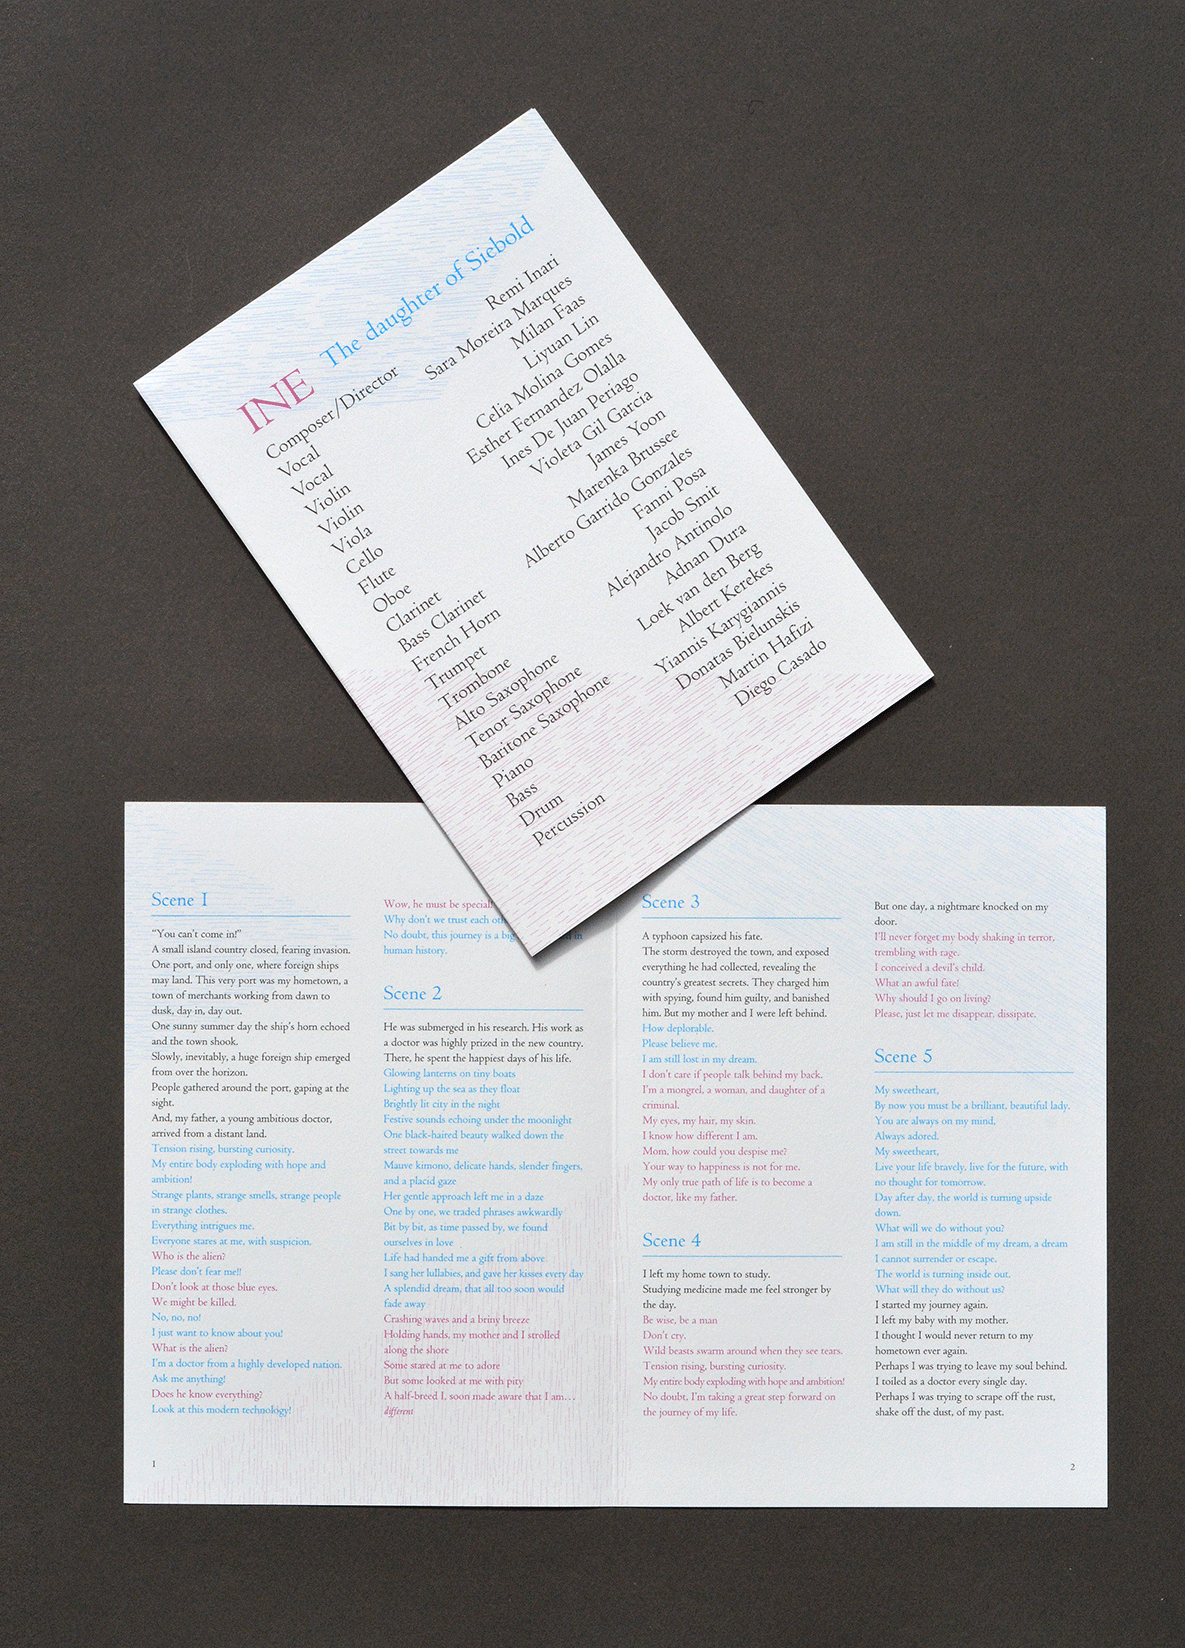 INE The daughter of Siebold
Composer/Director Remi Inari
Vocal Sara Moreira Marques
Vocal Milan Faas
Violin Liyuan Lin
Violin Celia Molina Gomes
Viola Esther Fernandez Olalla
Cello Ines De Juan Periago
Flute Violeta Gil Garcia
Oboe James Yoon
Clarinet Marenka Brussee
Bass Clarinet Alberto Garrido Gonzales
French Horn Fanni Posa
Trumpet Jacob Smit
Trombone Alejandro Antinolo
Alto Saxophone Adnan Dura
Tenor Saxophone Loek van den Berg
Baritone Saxophone Albert Kerekes
Piano Yiannis Karygiannis
Bass Donatas Bielunskis
Drum Martin Hafizi
Percussion Diego Casado
Scene 1
“You can’t come in!”
A small island country closed, fearing invasion.
One port, and only one, where foreign ships
may land. This very port was my hometown, a
town of merchants working from dawn to
dusk, day in, day out.
One sunny summer day the ship’s horn echoed
and the town shook.
Slowly, inevitably, a huge foreign ship emerged
from over the horizon.
People gathered around the port, gaping at the
sight.
And, my father, a young ambitious doctor,
arrived from a distant land.
Tension rising, bursting curiosity.
My entire body exploding with hope and
ambition!
Strange plants, strange smells, strange people
in strange clothes.
Everything intrigues me.
Everyone stares at me, with suspicion.
Who is the alien?
Please don’t fear me!!
Don’t look at those blue eyes.
We might be killed.
No, no, no!
I just want to know about you!
What is the alien?
I’m a doctor from a highly developed nation.
Ask me anything!
Does he know everything?
Look at this modern technology!
1
Wow, he must be special!
Why don’t we trust each
No doubt, this journey is a in
human history.
Scene 2
He was submerged in his research. His work as
a doctor was highly prized in the new country.
There, he spent the happiest days of his life.
Glowing lanterns on tiny boats
Lighting up the sea as they float
Brightly lit city in the night
Festive sounds echoing under the moonlight
One black-haired beauty walked down the
street towards me
Mauve kimono, delicate hands, slender fingers,
and a placid gaze
Her gentle approach left me in a daze
One by one, we traded phrases awkwardly
Bit by bit, as time passed by, we found
ourselves in love
Life had handed me a gift from above
I sang her lullabies, and gave her kisses every day
A splendid dream, that all too soon would
fade away
Crashing waves and a briny breeze
Holding hands, my mother and I strolled
along the shore
Some stared at me to adore
But some looked at me with pity
A half-breed I, soon made aware that I am…
different
Scene 3
A typhoon capsized his fate.
The storm destroyed the town, and exposed
everything he had collected, revealing the
country’s greatest secrets. They charged him
with spying, found him guilty, and banished
him. But my mother and I were left behind.
How deplorable.
Please believe me.
I am still lost in my dream.
I don’t care if people talk behind my back.
I’m a mongrel, a woman, and daughter of a
criminal.
My eyes, my hair, my skin.
I know how different I am.
Mom, how could you despise me?
Your way to happiness is not for me.
My only true path of life is to become a
doctor, like my father.
Scene 4
I left my home town to study.
Studying medicine made me feel stronger by
the day.
Be wise, be a man
Don’t cry.
Wild beasts swarm around when they see tears.
Tension rising, bursting curiosity.
My entire body exploding with hope and ambition!
No doubt, I’m taking a great step forward on
the journey of my life.
But one day, a nightmare knocked on my
door.
I’ll never forget my body shaking in terror,
trembling with rage.
I conceived a devil’s child.
What an awful fate!
Why should I go on living?
Please, just let me disappear, dissipate.
Scene 5
My sweetheart,
By now you must be a brilliant, beautiful lady.
You are always on my mind,
Always adored.
My sweetheart,
Live your life bravely, live for the future, with
no thought for tomorrow.
Day after day, the world is turning upside
down.
What will we do without you?
I am still in the middle of my dream, a dream
I cannot surrender or escape.
The world is turning inside out.
What will they do without us?
I started my journey again.
I left my baby with my mother.
I thought I would never return to my
hometown ever again.
Perhaps I was trying to leave my soul behind.
I toiled as a doctor every single day.
Perhaps I was trying to scrape off the rust,
shake off the dust, of my past.
2